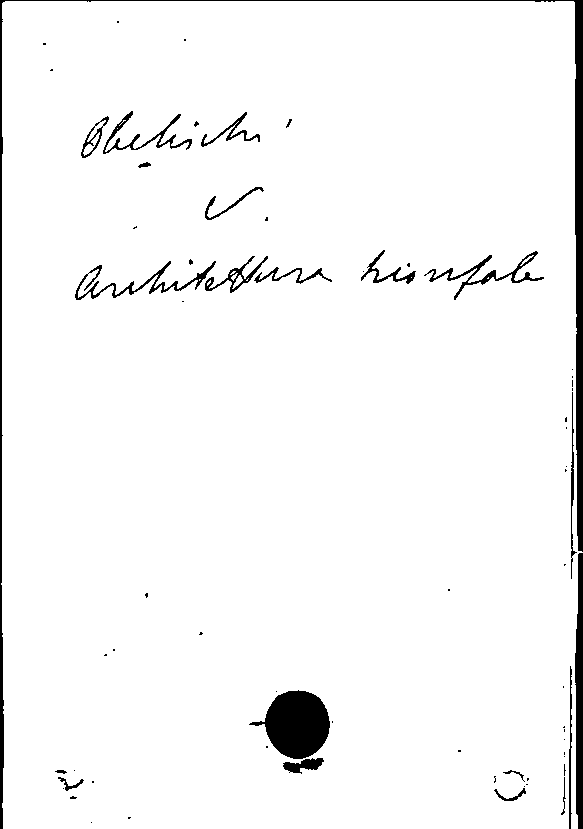 Obelischi
v.
Architettura trionfale